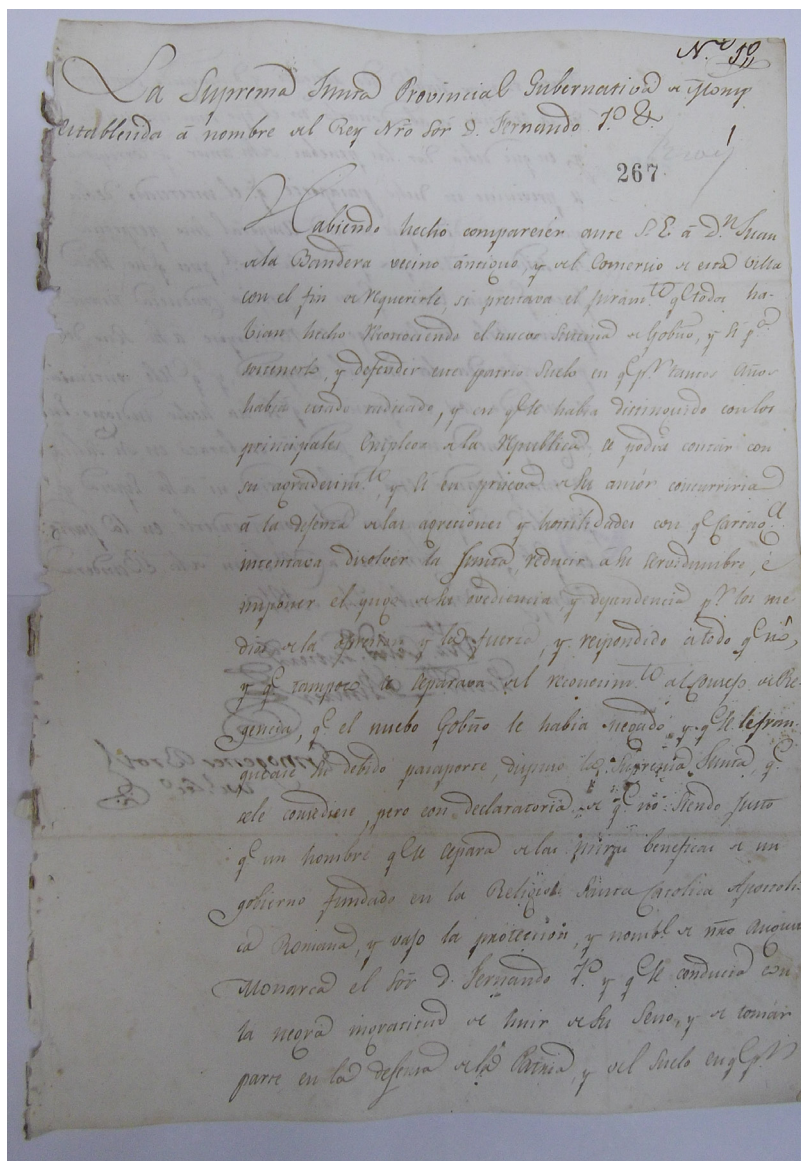 N.º 10
La Suprema Junta Provincial Gubernativa de Momp.
establecida á nombre del Rey Nro Sor. D. Fernando 7.º &.
267
Habiendo hecho comparecér ante S.E. á D.n Juan
de la Bandera vecino ántiguo, y del Comercio de esta Villa
con el fin de requerirle, si prestava el juram.to q.e todos ha-
bian hecho reconociendo el nuevo Sistema de Gobno, y si p.a
sostenerlo, y defender este patrio suelo en q.e p.r tantos años
habia estado radicado, y en q.e se le habia distinguido con los
principales Empleos de la Republica se podia contar con
su agradecim.to, y si en prueva de su amór concurriria
á la defensa de las agreciones y hostilidades con q.e Cartag.a
intentava disolver la Junta, reducir á su servidumbre, é
imponer el yugo de su ovediencia y dependencia p.r los me-
dios de la opresion y la fuerza, y respondido á todo q.e nó,
y q.e tampoco se separava del reconocim.to al Consejo de Re-
gencia, q.e el nuebo Gobno le habia negado y q.e se le fran-
quease su debido pasaporte, dispuso la Suprema Junta, q.e
se le consediese, pero con declaratoria de q.e no siendo justo
q.e un hombre q.e se separa de las miras beneficas de un
gobierno fundado en la Religion Santa Catolica Apostoli-
ca Romana, y vajo la protección, y nombe. de nro Augusto
Monarca el Sor. D. Fernando 7.º y q.e se conducia con
la negra ingratitud de huir de su Seno, y de tomar
parte en la defensa de la Patria, y del suelo en q.e p.r